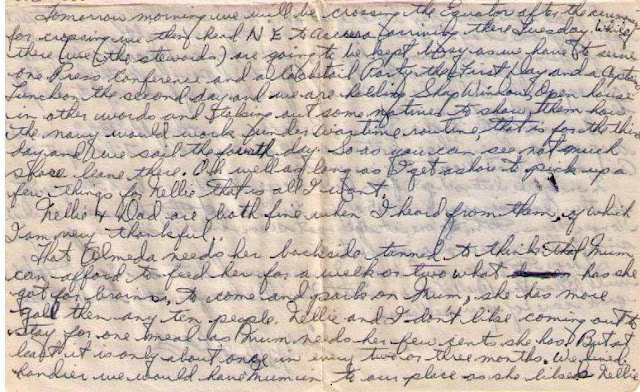 Tomorrow morning we will be crossing the Equator after the
for crossing we then head N E to Accra arriving there Tuesday. While
there we (the stewards) are going to be kept busy as we have to serve
one Press Conference and a Cocktail Party the First Day and a
Luncheon the second day and we are holding Shop Window, Open house
in other words and taking out some natives to show them how
the navy would work under wartime routine, that is for the third
day and we sail the fourth day. So as you can see not much
shore leave there. Oh well as long as I get ashore to pick up a
few things for Nellie that is all I want.
Nellie & Dad are both fine when I heard from them, of which
I am very thankful.
That Almeda needs her backside tanned to think that Mum
can afford to feed her for a week or two what has she
got for brains, to come and park on Mum, she has more
gall then any ten people. Nellie and I don't like coming out to
stay for one meal as Mum needs her few cents she has. But at
least it is only about once in every two or three months. We lived
handier we would have Mum in to our place as she likes Nellie